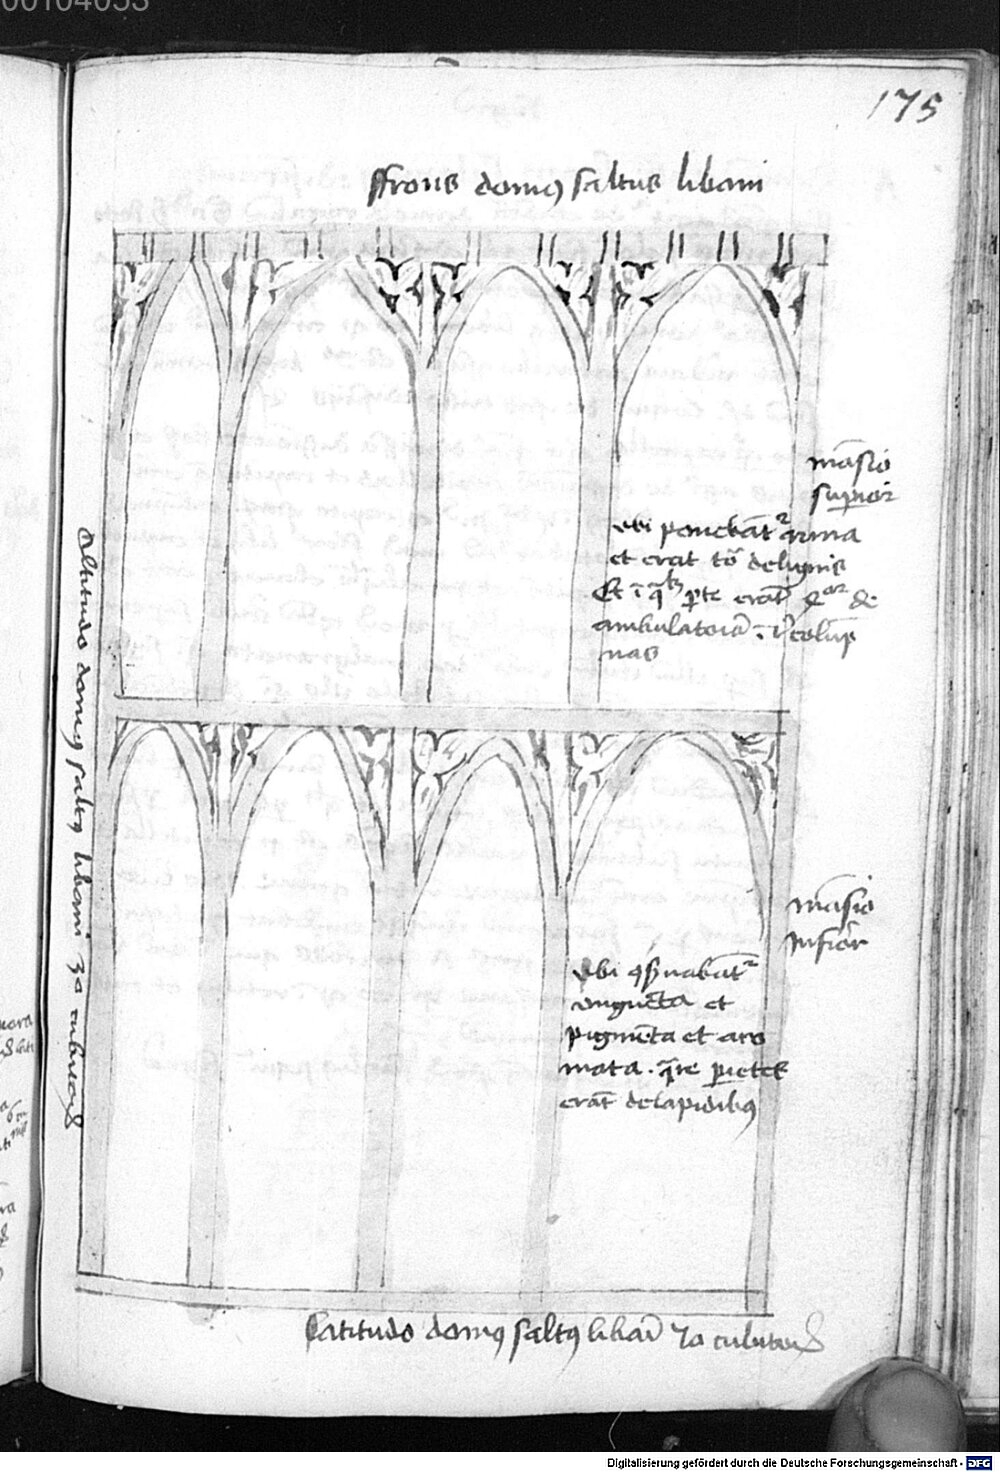 00104053
175
ffrons domus saltus libani
māsio
superior
vbi ponebāt arma
et erat to de lignis
Et ī q parte erāt de
ambulatoria colūp
nas
Altitudo domus saltus libani 30 cubitorum
māsio
inferior
vbi
vnguēta et
pigmēta et aro
mata. quare parietes
erāt de lapidibus
Latitudo domus saltus libani cubitorum
Digitalisierung gefördert durch die Deutsche Forschungsgemeinschaft - DFG